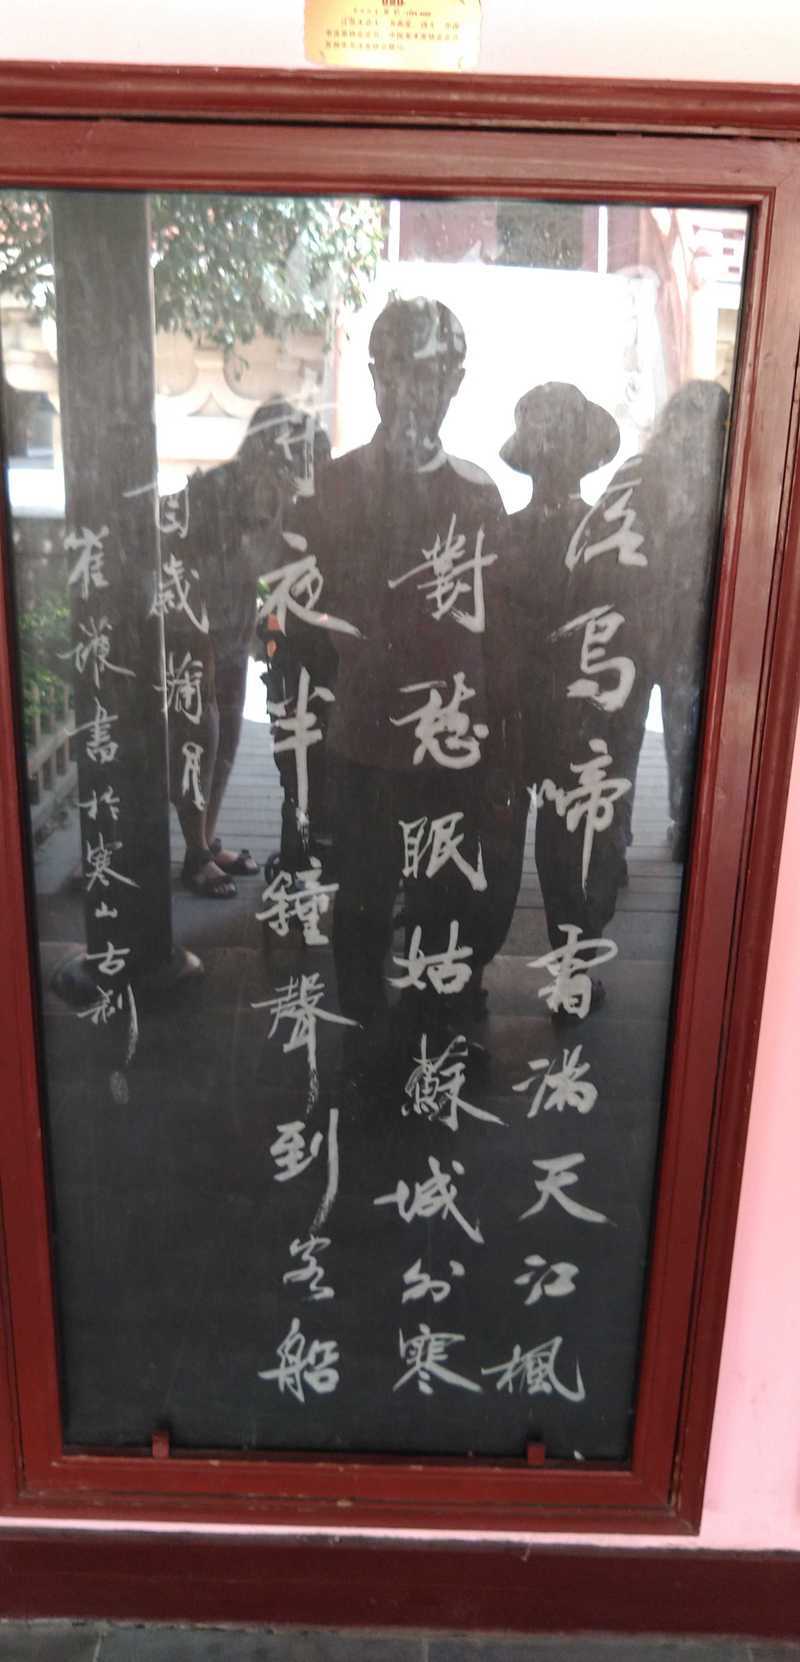 落烏啼霜滿天江楓
火對愁眠姑蘇城外寒
寺夜半鐘聲到客船
百歲蒲月
崔護書於寒山古刹